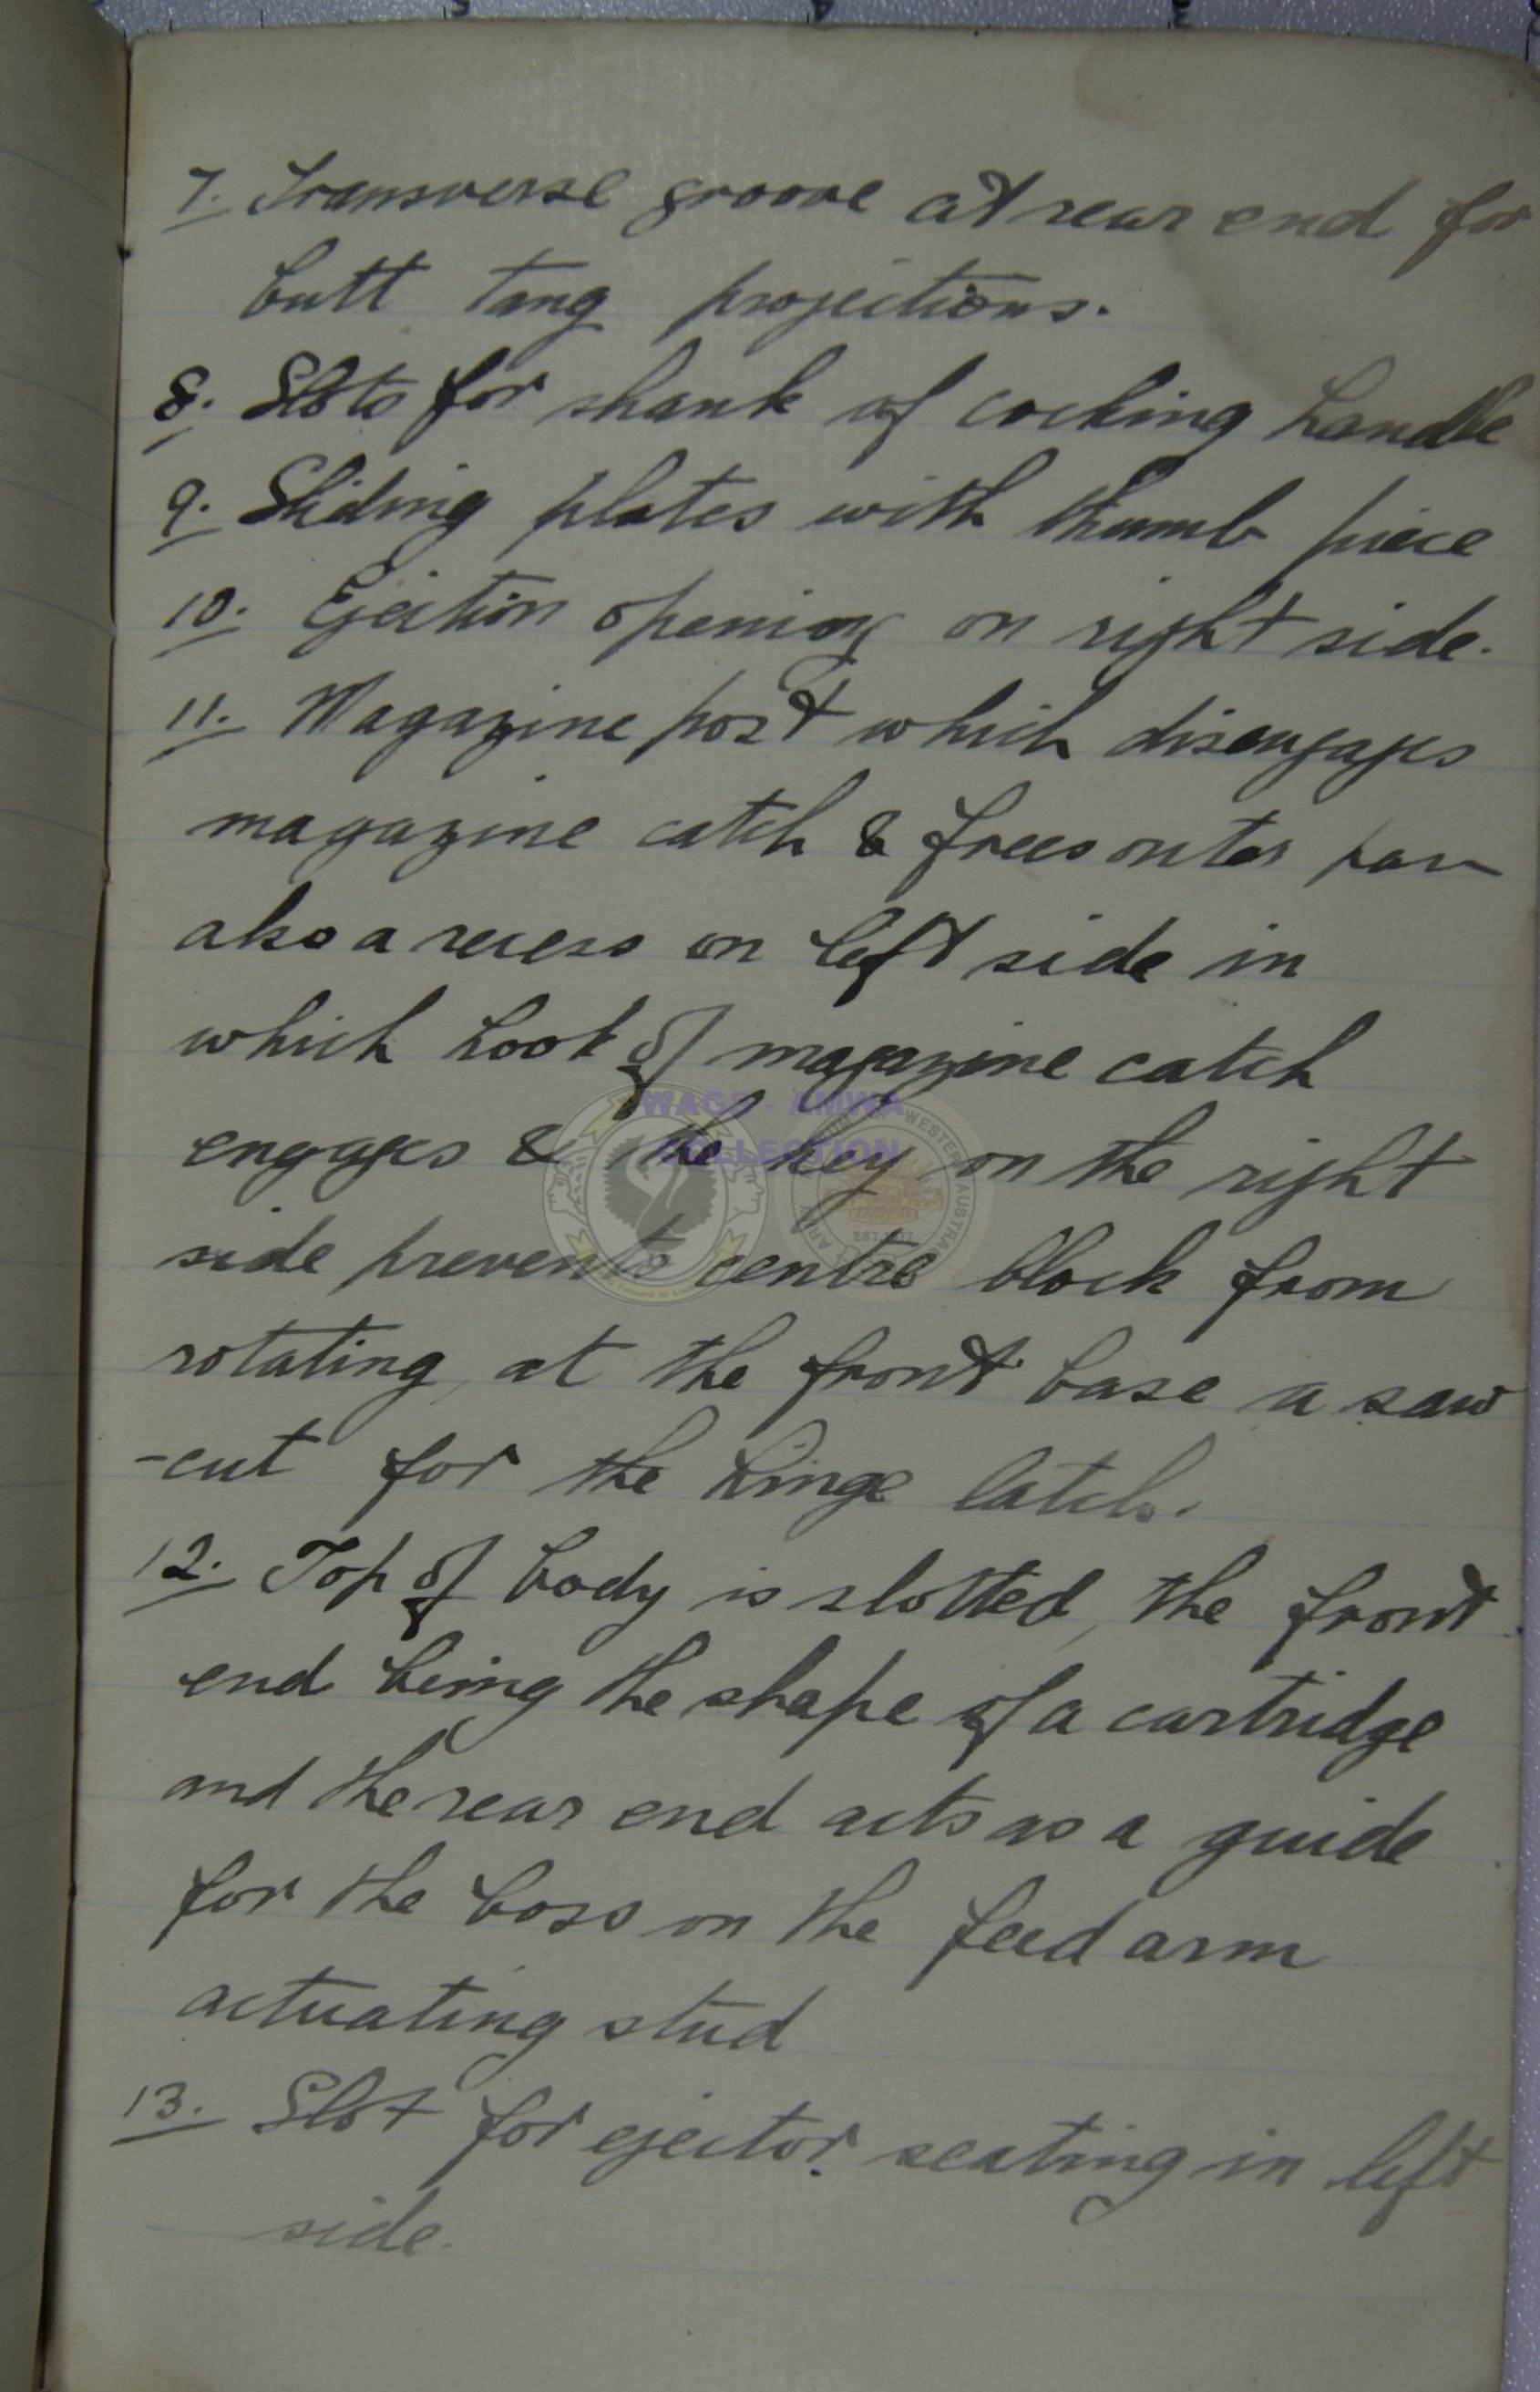 7. Transverse groove at rear end for
butt tang projections.
8. Slots for shank of cocking handle
9. Sliding plates with thumb piece
10. Ejection opening on right side.
11. Magazine post which disengages
magazine catch & frees outer pan
also a recess on left side in
which hook of magazine catch
engages & the key on the right
side prevents centre block from
rotating, at the front base a saw
-cut for the hinge latch.
12. Top of body is slotted, the front
end being the shape of a cartridge
and the rear end acts as a guide
for the boss on the feed arm
actuating stud
13. Slot for ejector seating in left
side.
WAGS - AMWA
COLLECTION